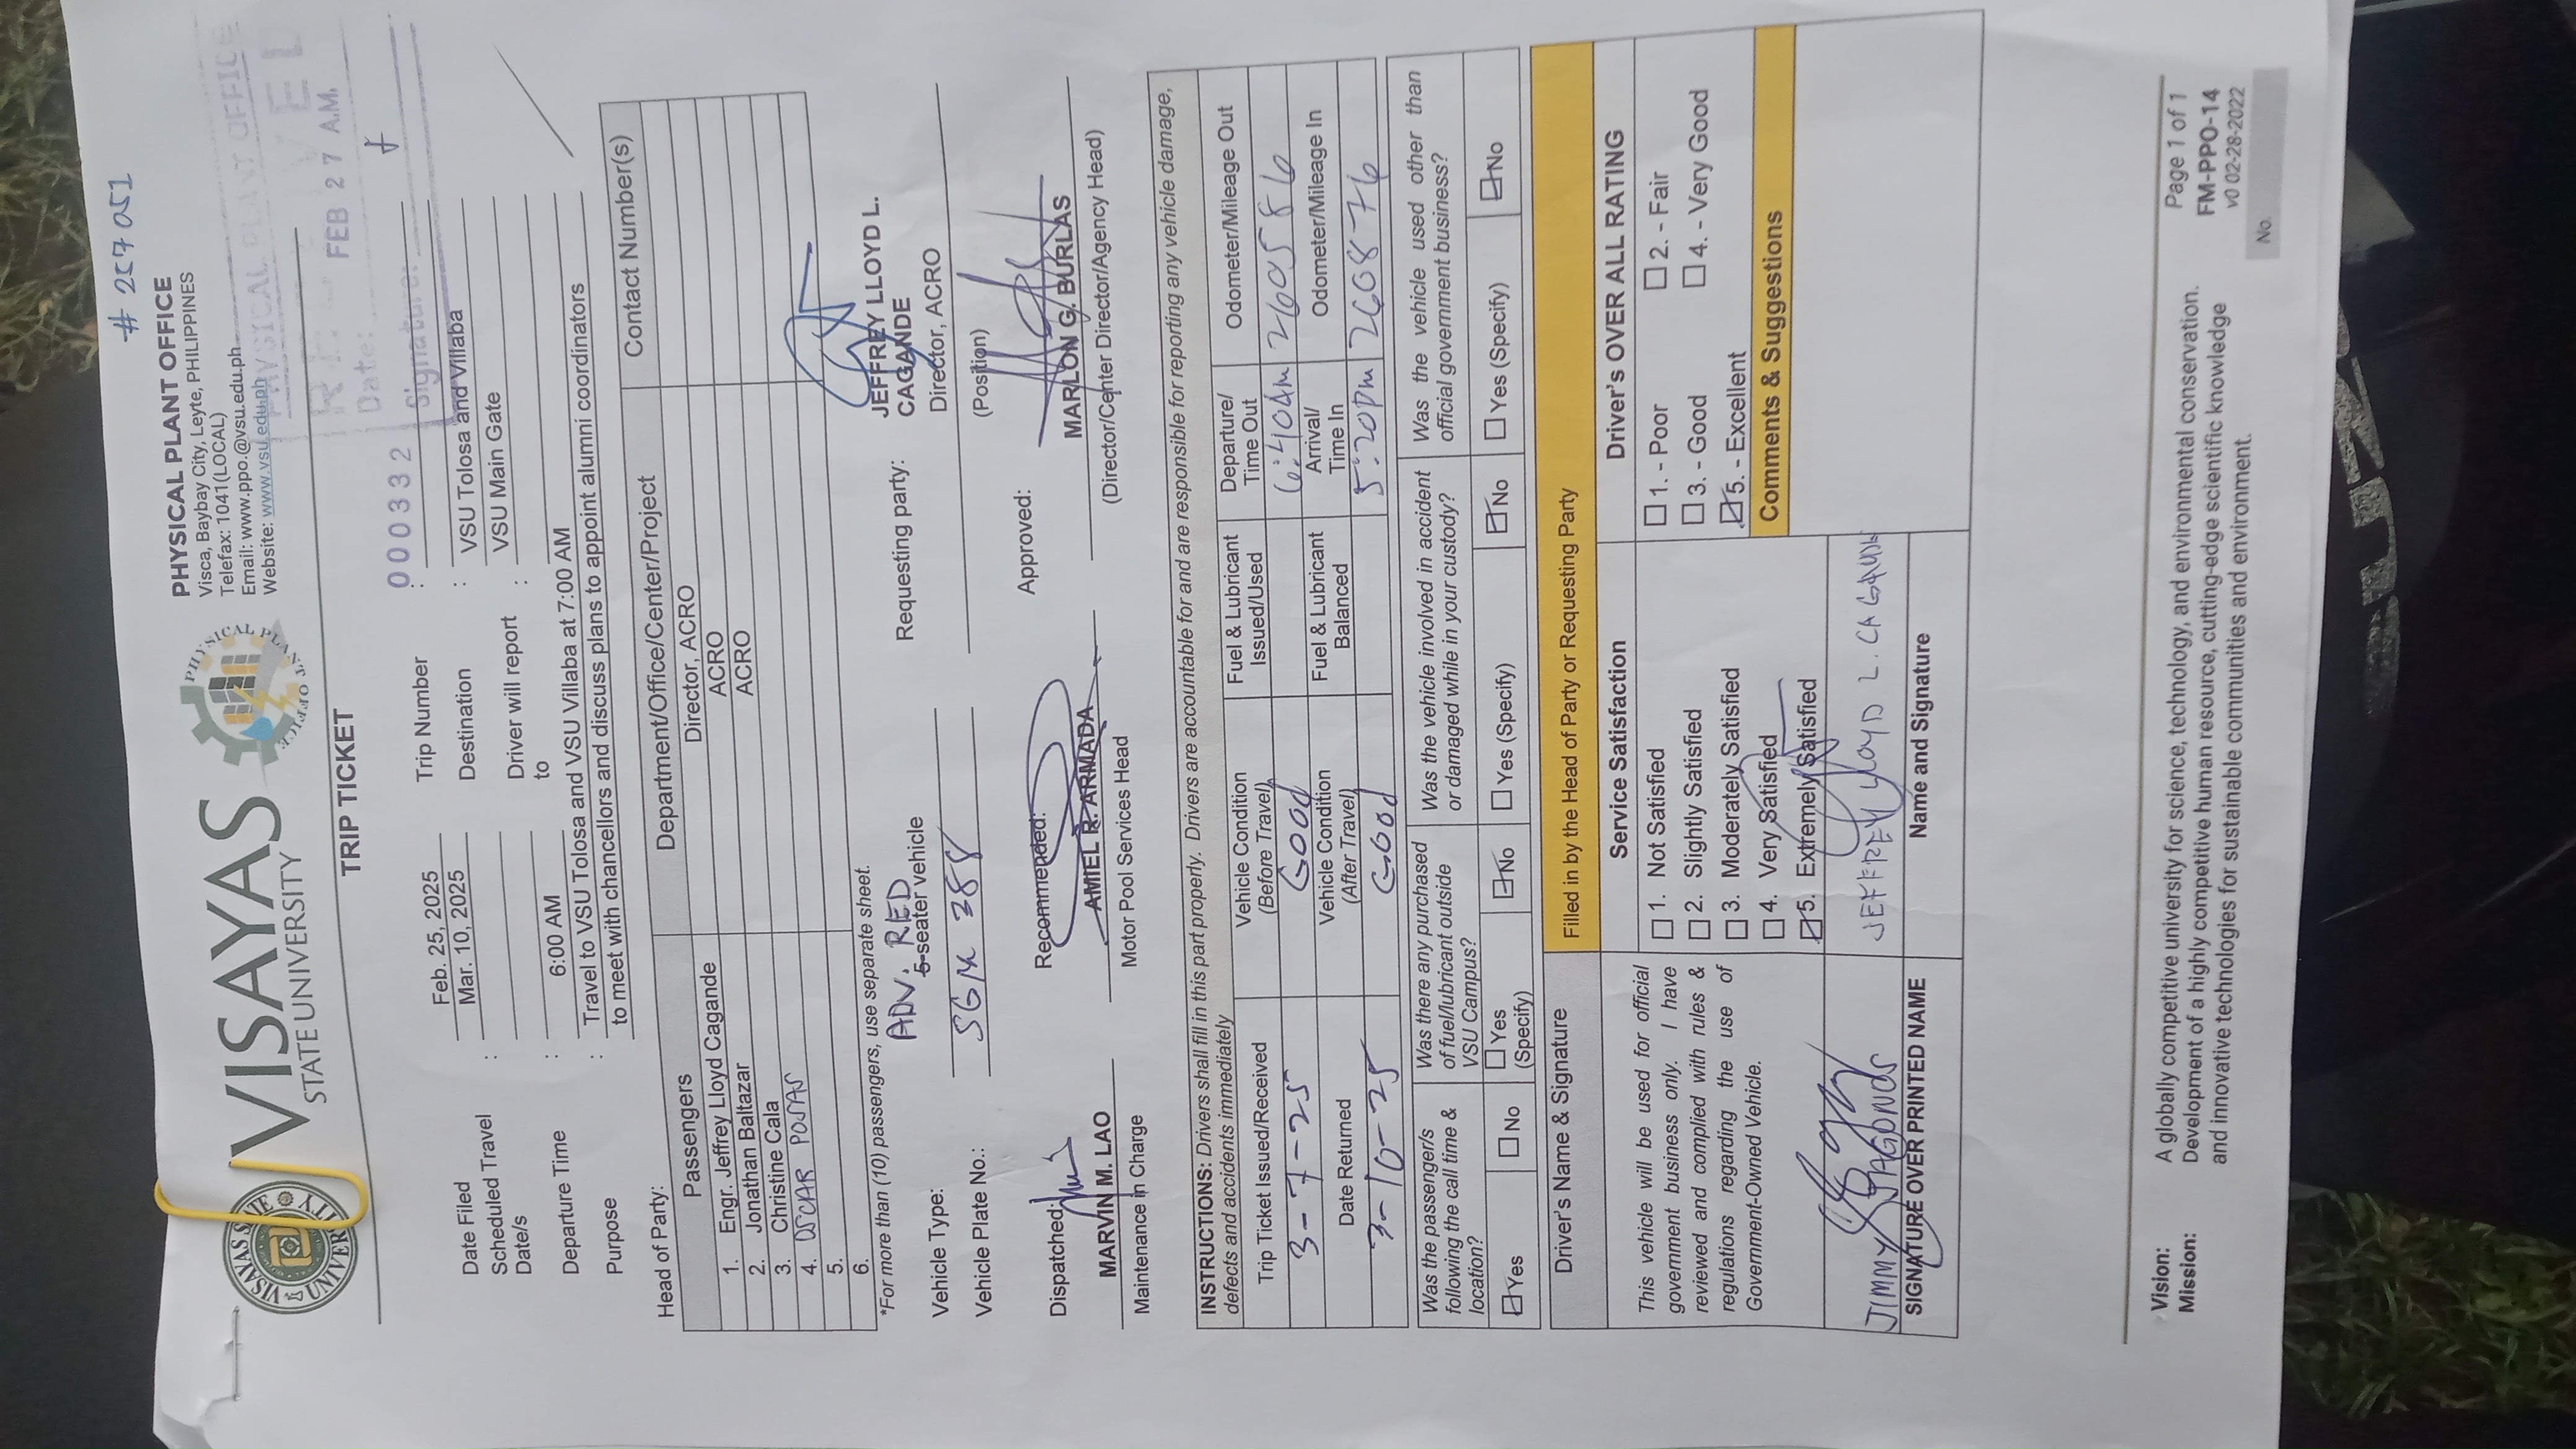 # 257051
VISAYAS
STATE UNIVERSITY
PHYSICAL PLANT OFFICE
PHYSICAL PLANT OFFICE
Visca, Baybay City, Leyte, PHILIPPINES
Telefax: 1041(LOCAL)
Email: www.ppo.@vsu.edu.ph
Website: www.vsu.edu.ph
PHYSICAL PLANT OFFICE
Date: FEB 27 A.M.
Signature:
TRIP TICKET
Date Filed : Feb. 25, 2025 Trip Number : 000332
Scheduled Travel Date/s : Mar. 10, 2025 Destination : VSU Tolosa and Villaba
Driver will report to : VSU Main Gate
Departure Time : 6:00 AM
Purpose : Travel to VSU Tolosa and VSU Villaba at 7:00 AM
to meet with chancellors and discuss plans to appoint alumni coordinators
Head of Party:
Passengers Department/Office/Center/Project Contact Number(s)
1. Engr. Jeffrey Lloyd Cagande Director, ACRO
2. Jonathan Baltazar ACRO
3. Christine Cala ACRO
4. OSCAR POSAS
5.
6.
*For more than (10) passengers, use separate sheet.
ADV. RED
Vehicle Type: 5-seater vehicle Requesting party: JEFFREY LLOYD L. CAGANDE
Vehicle Plate No.: SGM 388 Director, ACRO
(Position)
Dispatched: Recommended: Approved:
MARVIN M. LAO AMIEL R. ARMADA MARLON G. BURLAS
Maintenance in Charge Motor Pool Services Head (Director/Center Director/Agency Head)
INSTRUCTIONS: Drivers shall fill in this part properly. Drivers are accountable for and are responsible for reporting any vehicle damage,
defects and accidents immediately
Trip Ticket Issued/Received Vehicle Condition (Before Travel) Fuel & Lubricant Issued/Used Departure/ Time Out Odometer/Mileage Out
3-7-25 Good 6:40am 260586
Date Returned Vehicle Condition (After Travel) Fuel & Lubricant Balanced Arrival/ Time In Odometer/Mileage In
3-10-25 Good 5:20pm 260876
Was the passenger/s following the call time & location? Was there any purchased of fuel/lubricant outside VSU Campus? Was the vehicle involved in accident or damaged while in your custody? Was the vehicle used other than official government business?
Yes No Yes (Specify) No Yes (Specify) No Yes (Specify) No
Driver's Name & Signature Filled in by the Head of Party or Requesting Party
Service Satisfaction Driver's OVER ALL RATING
This vehicle will be used for official
government business only. I have
reviewed and complied with rules &
regulations regarding the use of
Government-Owned Vehicle.
1. Not Satisfied
2. Slightly Satisfied
3. Moderately Satisfied
4. Very Satisfied
5. Extremely Satisfied
1. - Poor 2. - Fair
3. - Good 4. - Very Good
5. - Excellent
Comments & Suggestions
JIMMY SAGONOS JEFFREY LLOYD L. CAGANDE
SIGNATURE OVER PRINTED NAME Name and Signature
Vision: A globally competitive university for science, technology, and environmental conservation.
Mission: Development of a highly competitive human resource, cutting-edge scientific knowledge
and innovative technologies for sustainable communities and environment.
Page 1 of 1
FM-PPO-14
v0 02-28-2022
No.